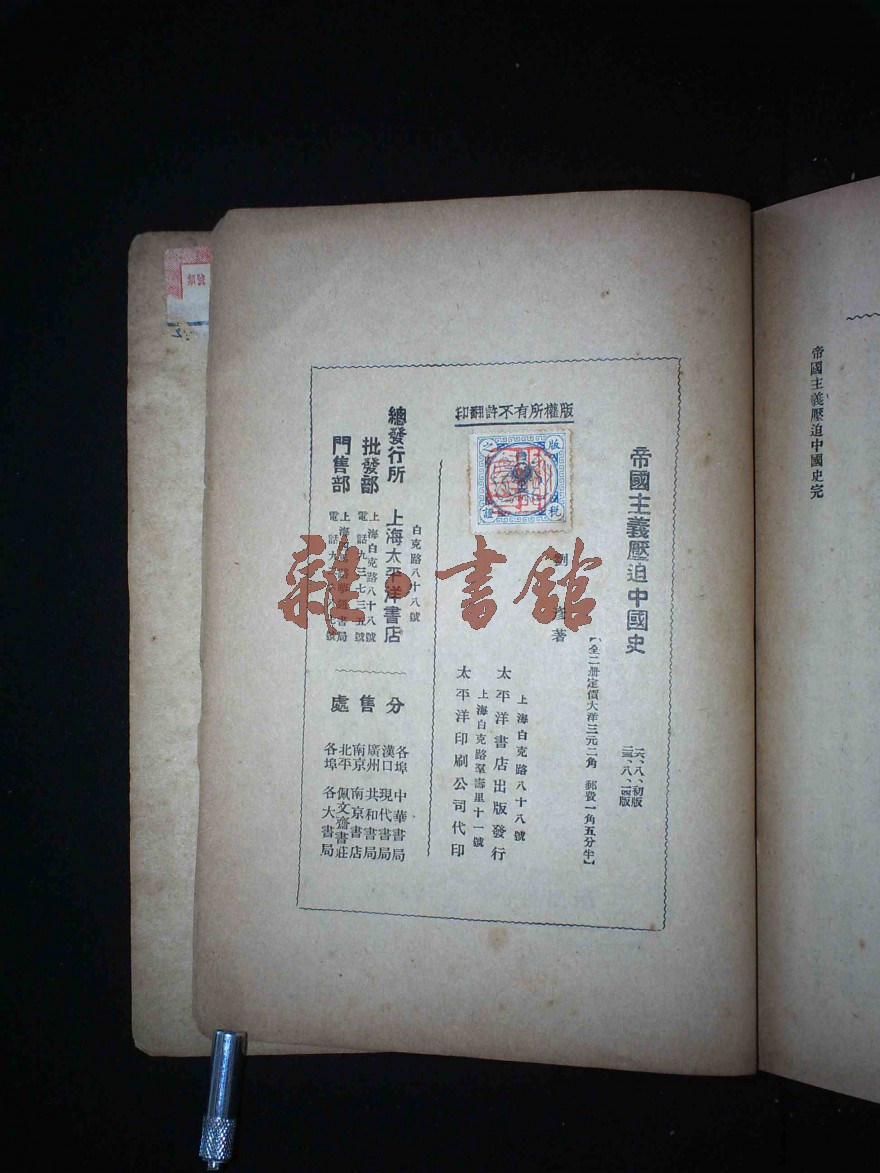 帝國主義壓迫中國史完
帝國主義壓迫中國史
一六、八、初版
版
【全二册定價大洋三元二角 郵費一角五分半】
版權所有不許翻印
版
稅
之
證
劉 彥 著
上海白克路八十八號
太平洋書店出版發行
上海白克路羣壽里十一號
太平洋印刷公司代印
白克路八十八號
總發行所 上海太平洋書店
批發部 上海白克路八十八號
電話九三七三五號
門售部 上海
書局
電話九
號
分售處
各埠 中華書局
漢口 現代書局
廣州 共和書局
南京 南京書店
北平 佩文齋書莊
各埠 各大書局
雜·書館